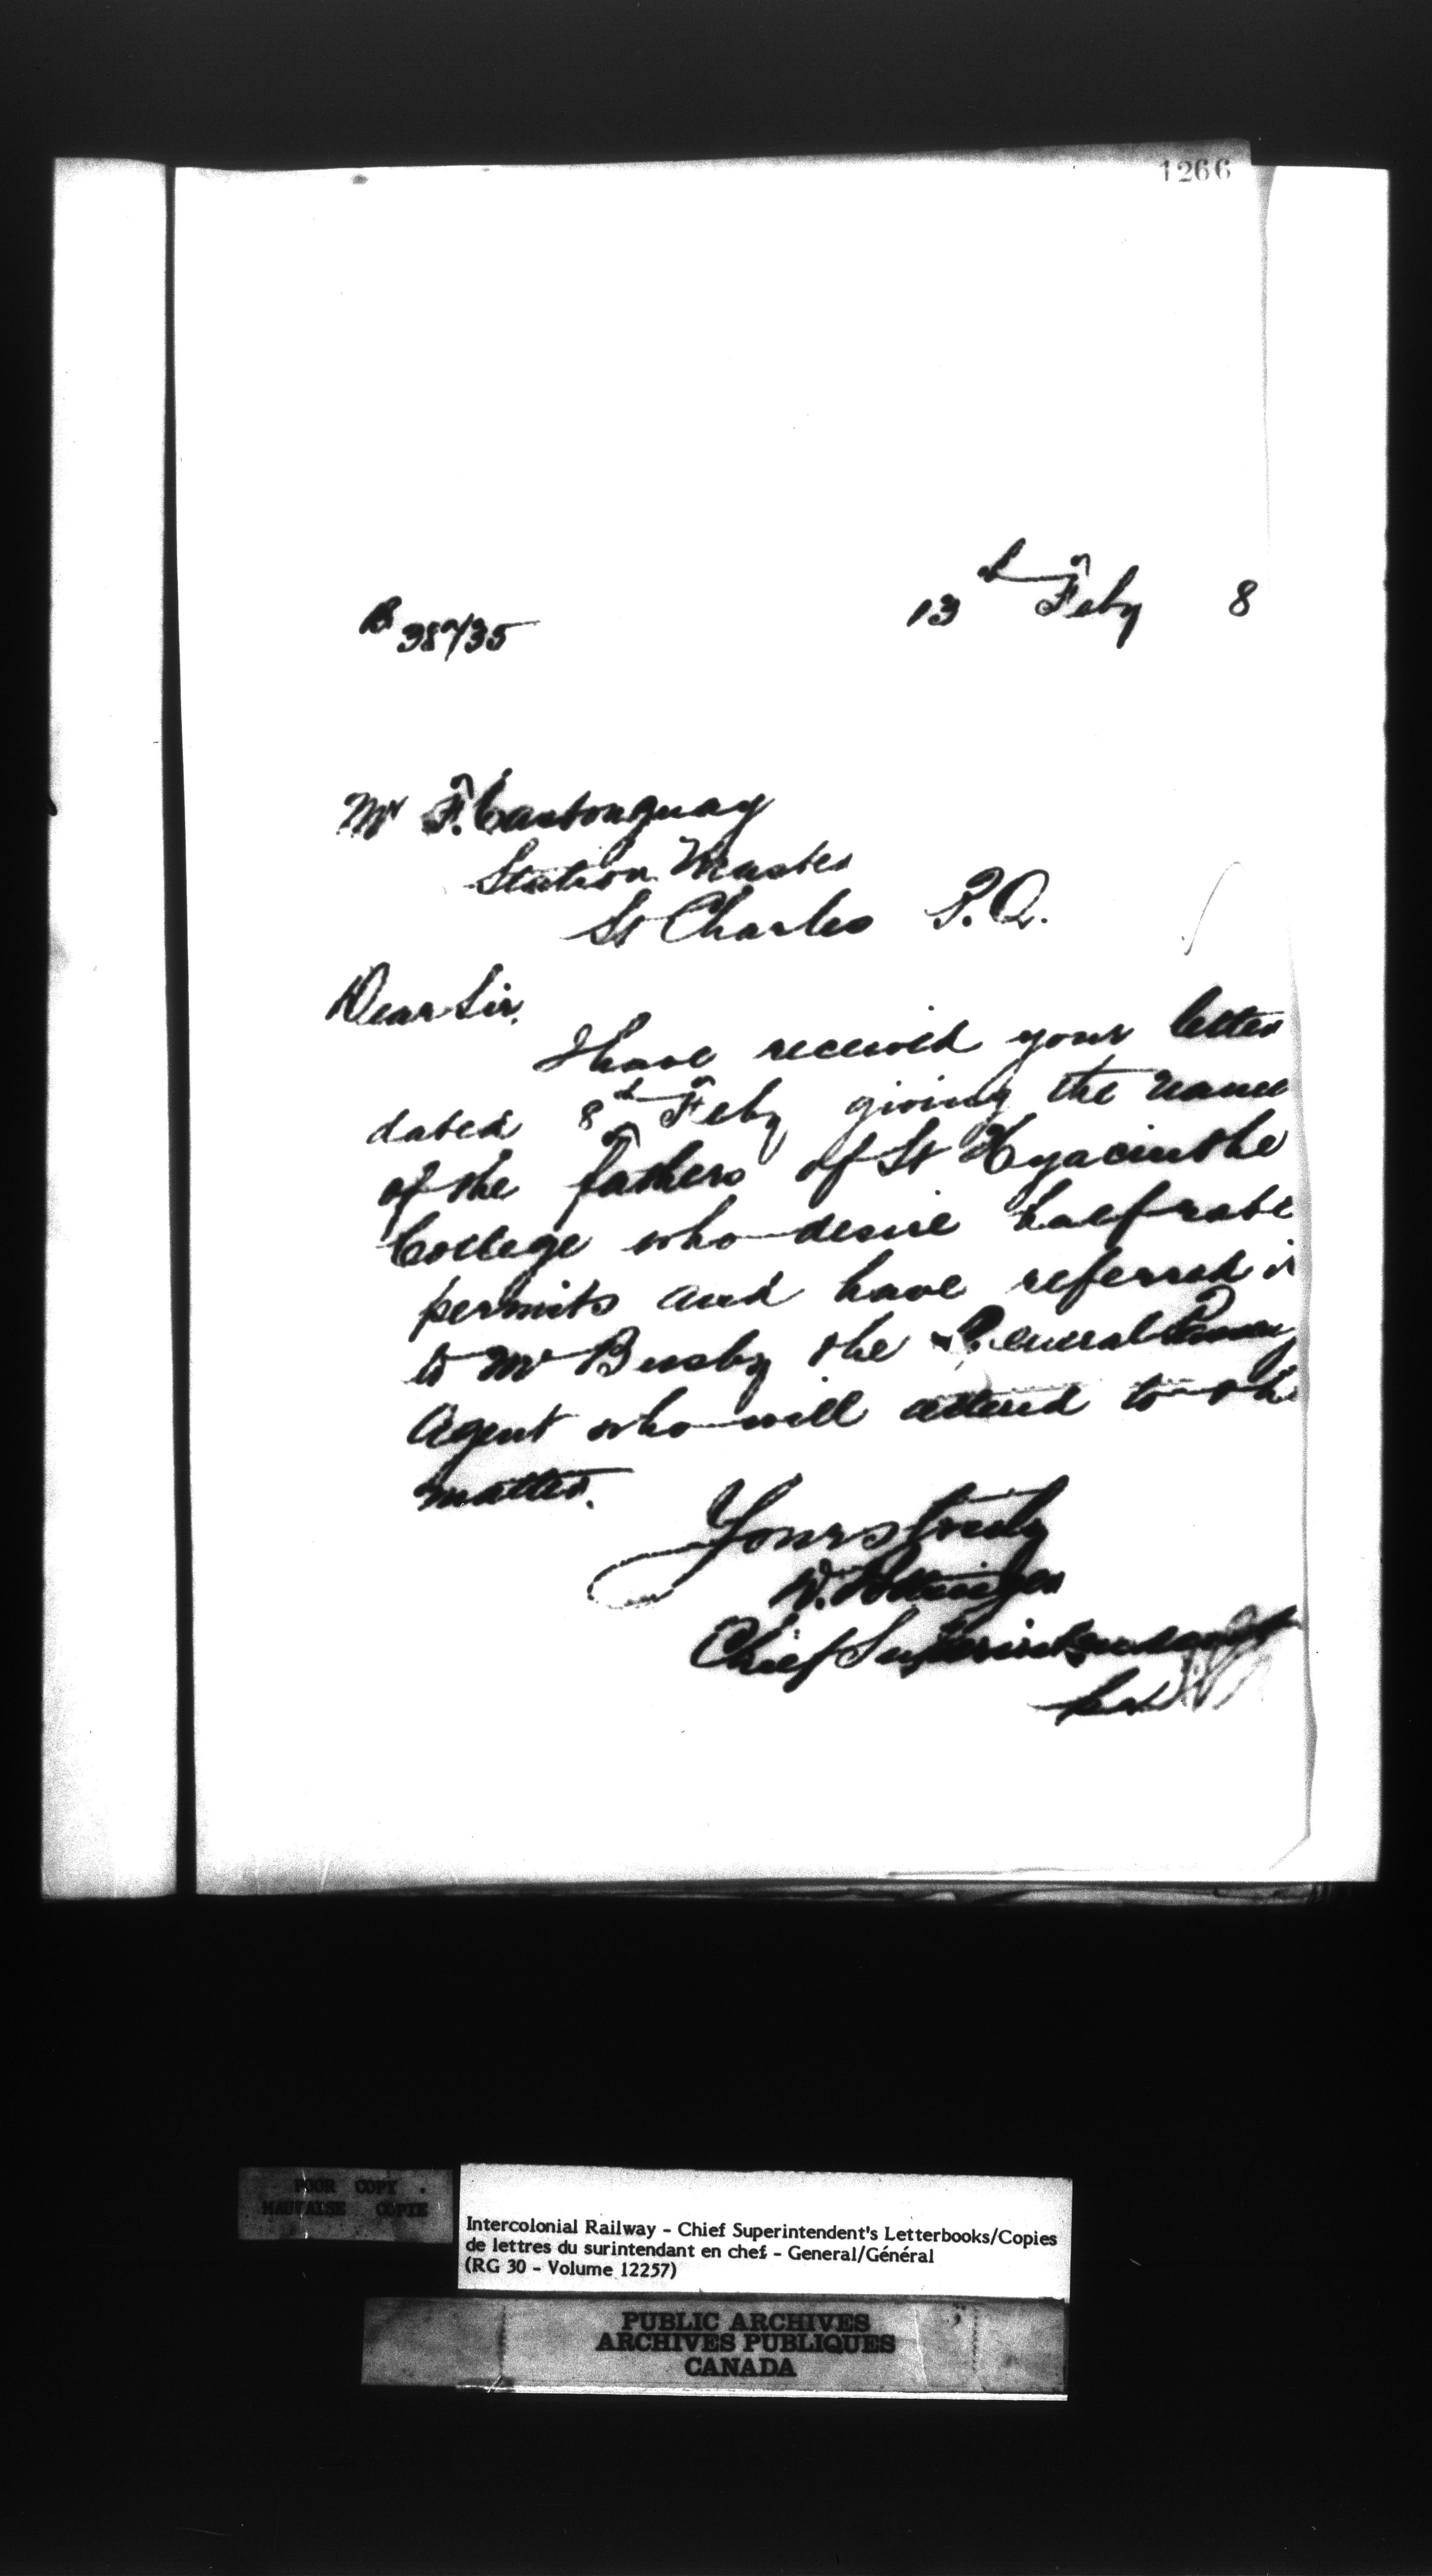 1266
B 38735
13th Feby 8
Mr F. Castonguay
Station Master
St Charles P.Q.
Dear Sir.
I have received your letter
dated 8th Feby giving the name
of the fathers of St Hyacinthe
College who desire half rate
permits and have referred it
to Mr Busby the General
Agent who will attend to the
matter.
Yours truly
D. Pottinger
Chief Superintendent
POOR COPY .
MAUVAISE COPIE
Intercolonial Railway - Chief Superintendent's Letterbooks/Copies
de lettres du surintendant en chef - General/Général
(RG 30 - Volume 12257)
PUBLIC ARCHIVES
ARCHIVES PUBLIQUES
CANADA